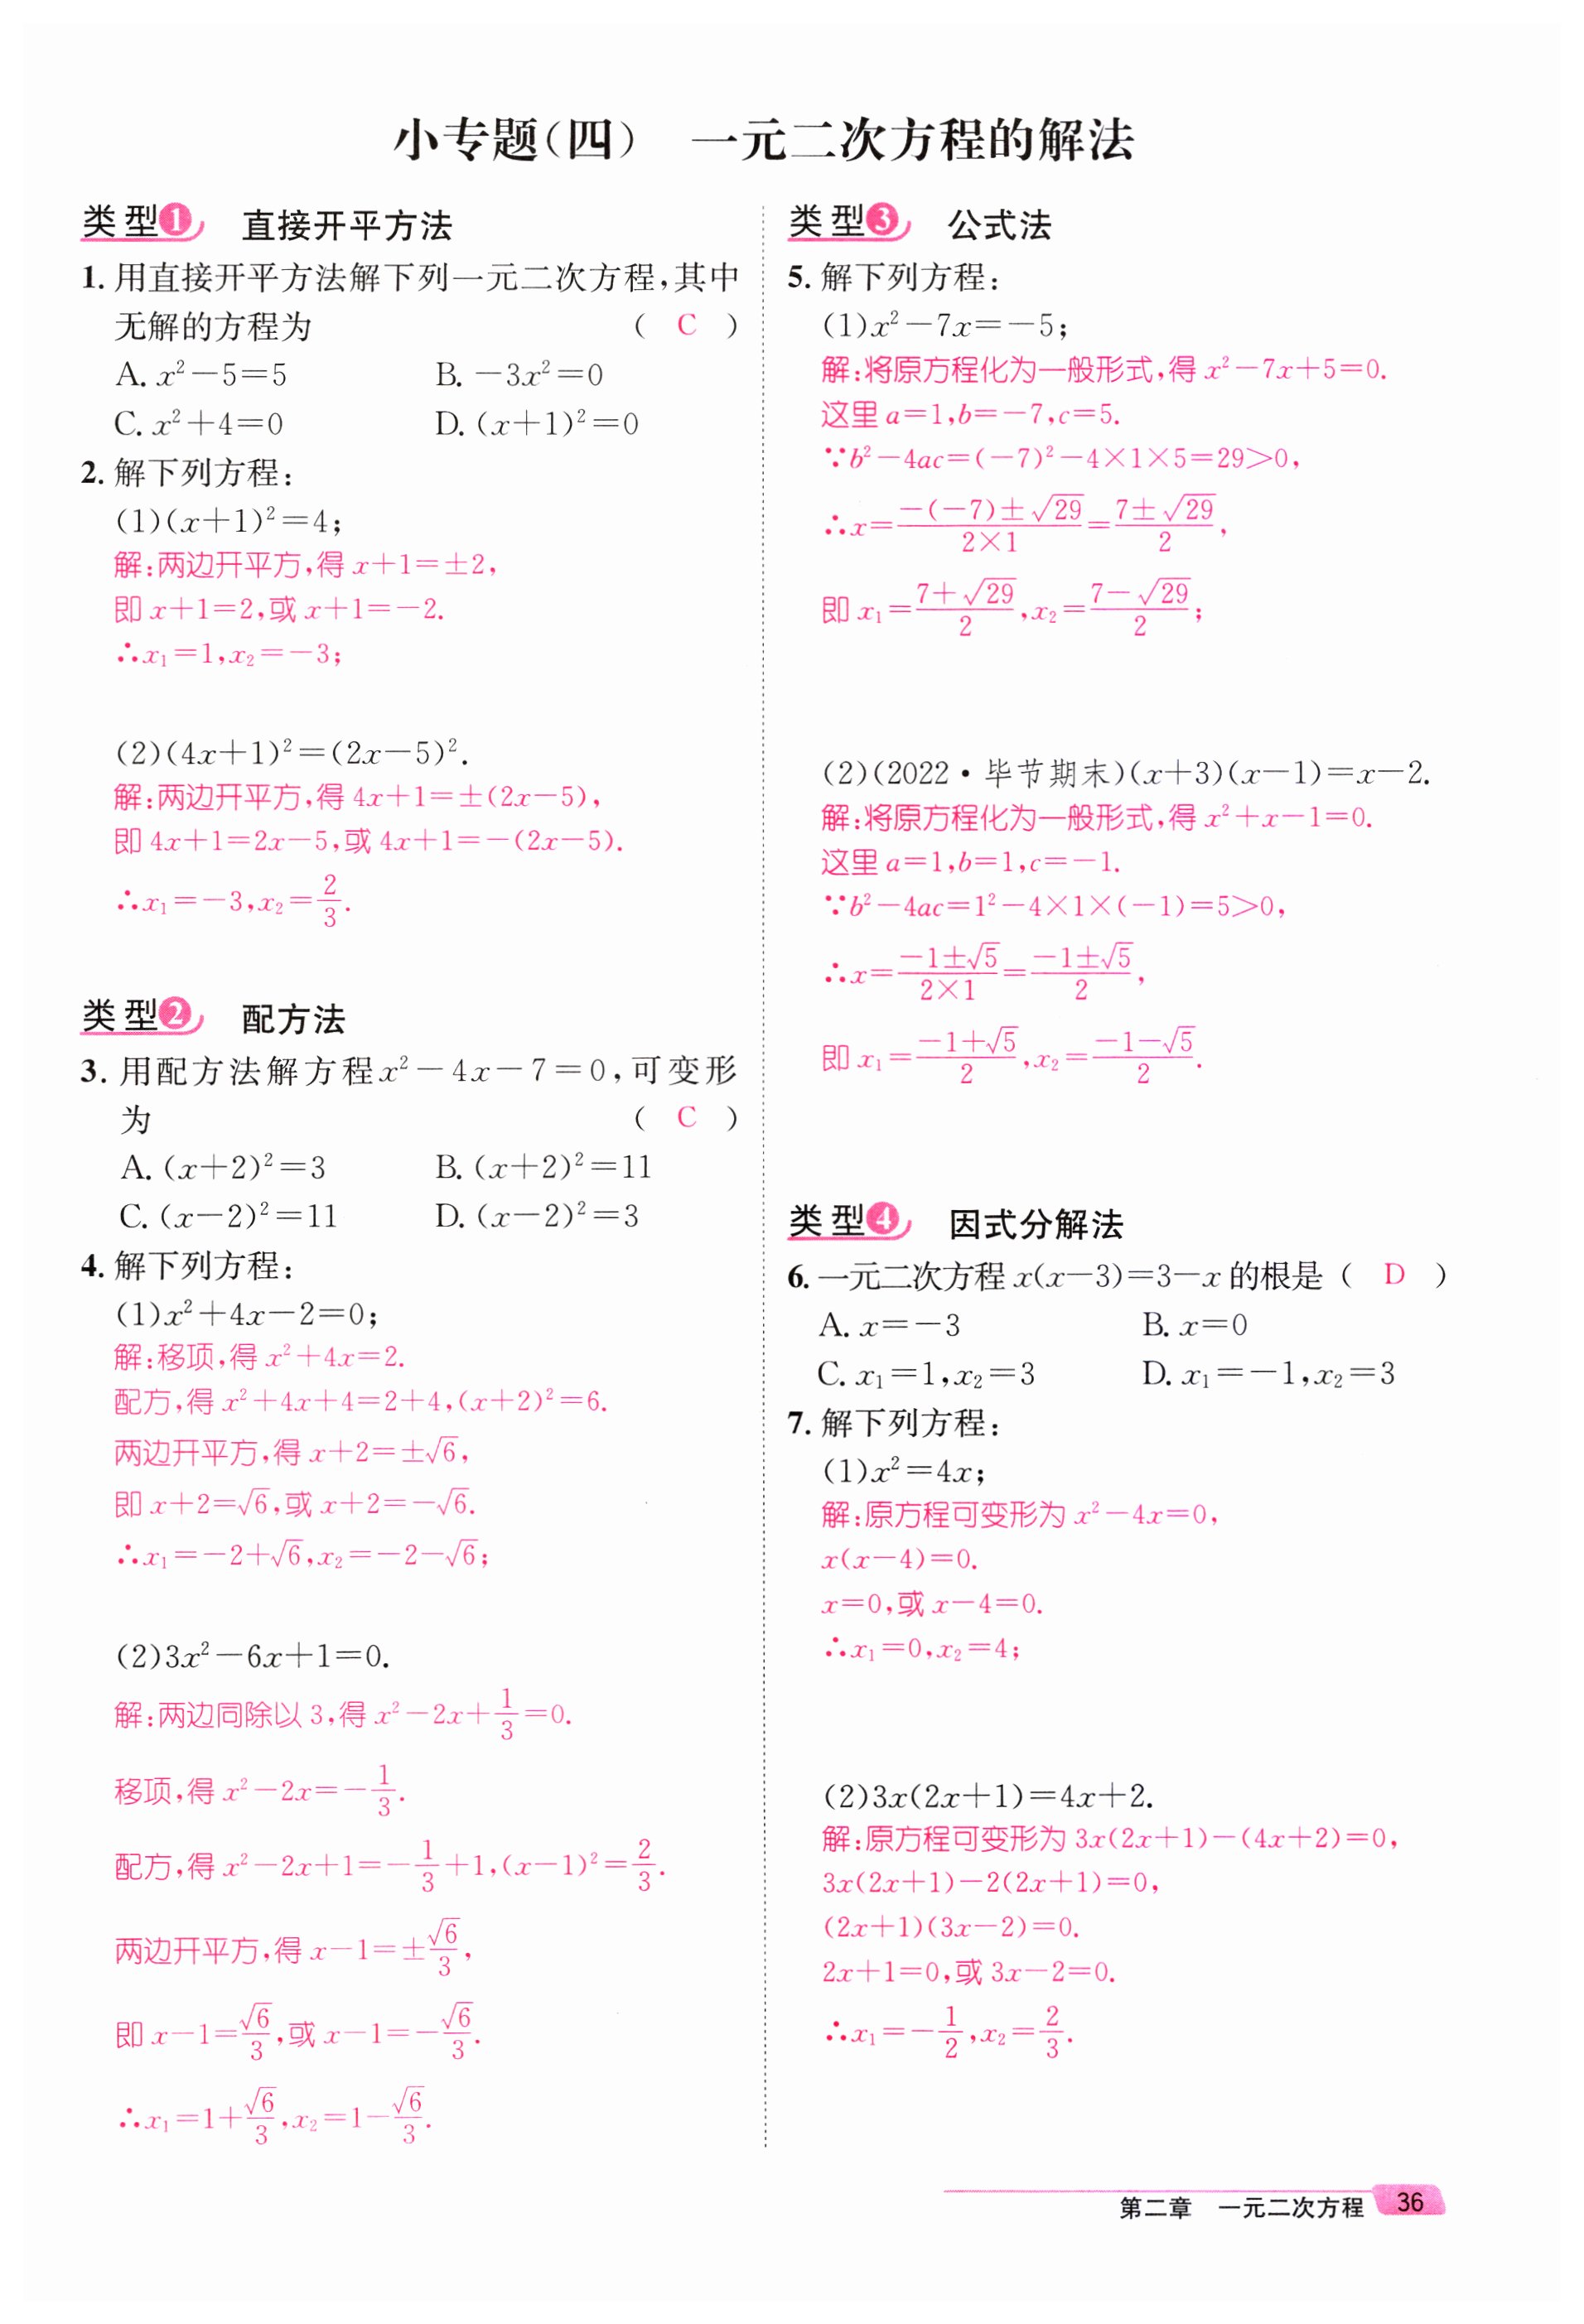 小专题(四) 一元二次方程的解法
类型1 直接开平方法
1. 用直接开平方法解下列一元二次方程,其中
无解的方程为 ( C )
A. x²-5=5 B. -3x²=0
C. x²+4=0 D. (x+1)²=0
2. 解下列方程:
(1)(x+1)²=4;
解:两边开平方,得 x+1=±2,
即 x+1=2,或 x+1=-2.
∴x₁=1,x₂=-3;
(2)(4x+1)²=(2x-5)².
解:两边开平方,得 4x+1=±(2x-5),
即 4x+1=2x-5,或 4x+1=-(2x-5).
∴x₁=-3,x₂=2/3.
类型2 配方法
3. 用配方法解方程x²-4x-7=0,可变形
为 ( C )
A. (x+2)²=3 B. (x+2)²=11
C. (x-2)²=11 D. (x-2)²=3
4. 解下列方程:
(1)x²+4x-2=0;
解:移项,得 x²+4x=2.
配方,得 x²+4x+4=2+4,(x+2)²=6.
两边开平方,得 x+2=±√6,
即 x+2=√6,或 x+2=-√6.
∴x₁=-2+√6,x₂=-2-√6;
(2)3x²-6x+1=0.
解:两边同除以 3,得 x²-2x+1/3=0.
移项,得 x²-2x=-1/3.
配方,得 x²-2x+1=-1/3+1,(x-1)²=2/3.
两边开平方,得 x-1=±√6/3,
即 x-1=√6/3,或 x-1=-√6/3.
∴x₁=1+√6/3,x₂=1-√6/3.
类型3 公式法
5. 解下列方程:
(1)x²-7x=-5;
解:将原方程化为一般形式,得 x²-7x+5=0.
这里 a=1,b=-7,c=5.
∵b²-4ac=(-7)²-4×1×5=29>0,
∴x=(-(-7)±√29)/(2×1)=(7±√29)/2,
即 x₁=(7+√29)/2,x₂=(7-√29)/2;
(2)(2022·毕节期末)(x+3)(x-1)=x-2.
解:将原方程化为一般形式,得 x²+x-1=0.
这里 a=1,b=1,c=-1.
∵b²-4ac=1²-4×1×(-1)=5>0,
∴x=(-1±√5)/(2×1)=(-1±√5)/2,
即 x₁=(-1+√5)/2,x₂=(-1-√5)/2.
类型4 因式分解法
6. 一元二次方程 x(x-3)=3-x 的根是 ( D )
A. x=-3 B. x=0
C. x₁=1,x₂=3 D. x₁=-1,x₂=3
7. 解下列方程:
(1)x²=4x;
解:原方程可变形为 x²-4x=0,
x(x-4)=0.
x=0,或 x-4=0.
∴x₁=0,x₂=4;
(2)3x(2x+1)=4x+2.
解:原方程可变形为 3x(2x+1)-(4x+2)=0,
3x(2x+1)-2(2x+1)=0,
(2x+1)(3x-2)=0.
2x+1=0,或 3x-2=0.
∴x₁=-1/2,x₂=2/3.
第二章 一元二次方程 36